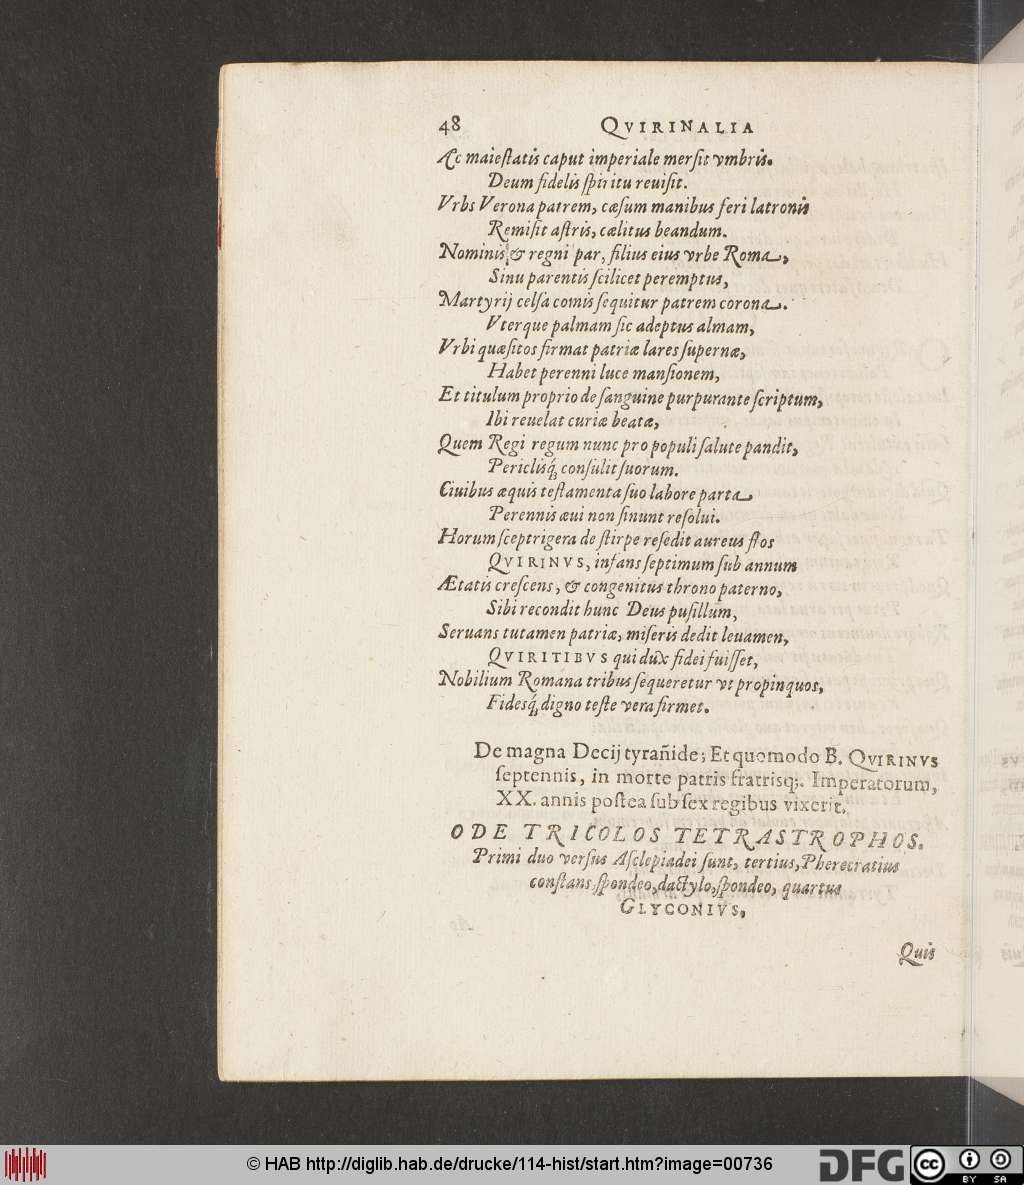 48 QVIRINALIA
Ac maiestatis caput imperiale mersit vmbris.
Deum fidelis spiritu reuisit.
Vrbs Verona patrem, cæsum manibus feri latronis
Remisit astris, cælitus beandum.
Nominis & regni par, filius eius vrbe Roma,
Sinu parentis scilicet peremptus,
Martyrij celsa comis sequitur patrem corona.
Vterque palmam sic adeptus almam,
Vrbi quæsitos firmat patriæ lares supernæ,
Habet perenni luce mansionem,
Et titulum proprio de sanguine purpurante scriptum,
Ibi reuelat curiæ beatæ,
Quem Regi regum nunc pro populi salute pandit,
Periclisq́; consulit suorum.
Ciuibus æquis testamenta suo labore parta
Perennis æui non sinunt resolui.
Horum sceptrigera de stirpe resedit aureus flos
QVIRINVS, infans septimum sub annum
Ætatis crescens, & congenitus throno paterno,
Sibi recondit hunc Deus pusillum,
Seruans tutamen patriæ, miseris dedit leuamen,
QVIRITIBVS qui dux fidei fuisset,
Nobilium Romana tribus sequeretur vt propinquos,
Fidesq́; digno teste vera firmet.
De magna Decij tyrañide; Et quomodo B. QVIRINVS
septennis, in morte patris fratrisq;. Imperatorum,
XX. annis postea sub sex regibus vixerit.
ODE TRICOLOS TETRASTROPHOS.
Primi duo versus Asclepiadei sunt, tertius, Pherecratius
constans, spondeo, dactylo, spondeo, quartus
GLYCONIVS,
Quis
© HAB http://diglib.hab.de/drucke/114-hist/start.htm?image=00736
DFG
cc BY SA